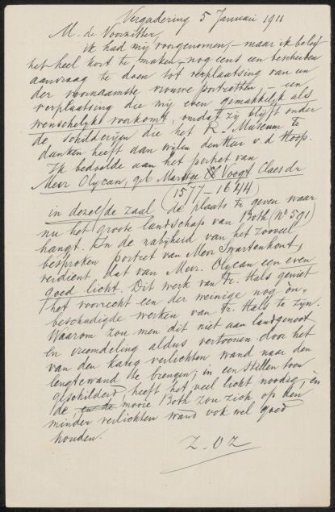 Vergadering 5 Januari 1911
M. de Voorzitter,
Ik had mij voorgenomen, maar ik beloof
het heel kort te maken, nog eens een bescheiden
aanvraag te doen tot verplaatsing van een
der voornaamste vrouwe portretten, een
verplaatsing die mij even gemakkelijk als
wenschelijk voorkomt, omdat zij blijft onder
de schilderijen die het R. Museum te
danken heeft aan wijlen den Heer v. d. Hoop.
Ik bedoelde aan het portret van
Mevr Olycan, geb. Maritge Voogt Claesdr
(1577-1644)
in dezelfde zaal de plaats te geven waar
nu het groote landschap van Both (No 591)
hangt. In de nabijheid van het zooveel
besproken portret van Mevr Swartenhout,
verdient, dat van Mevr. Olycan een even
goed licht. Dit werk van Fr. Hals geniet
het voorrecht een der weinige nog on-
beschadigde werken van Fr. Hals te zijn.
Waarom zou men dit niet aan landgenoot
en vreemdeling aldus vertoonen, door het
van den karig verlichten wand naar den
lengtewand te brengen; in een stillen toon
geschilderd, heeft het veel licht noodig, en
de mooie Both zou zich op den
minder verlichten wand ook wel goed
houden.
Z. OZ